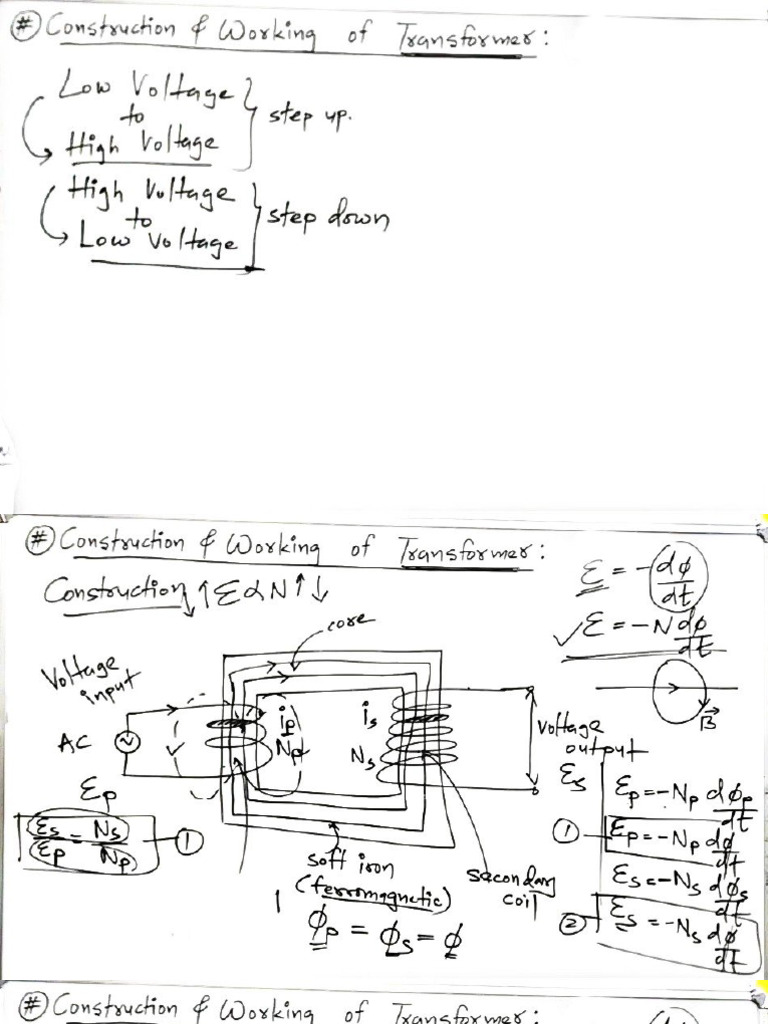 # Construction & Working of Transformer:
Low Voltage
to
High Voltage
step up.
High Voltage
to
Low Voltage
step down
# Construction & Working of Transformer:
Construction ↓ ↑ε∝N↑↓
ε = -dφ/dt
✓ε = -N dφ/dt
B⃗
core
Voltage input
AC
εp
ip
Np
is
Ns
Voltage output
εs
εs/εp = Ns/Np — ①
soft iron
(ferromagnetic)
secondary
coil
φp = φs = φ
εp = -Np dφp/dt
① εp = -Np dφ/dt
εs = -Ns dφs/dt
② εs = -Ns dφ/dt
# Construction & Working of Transformer: